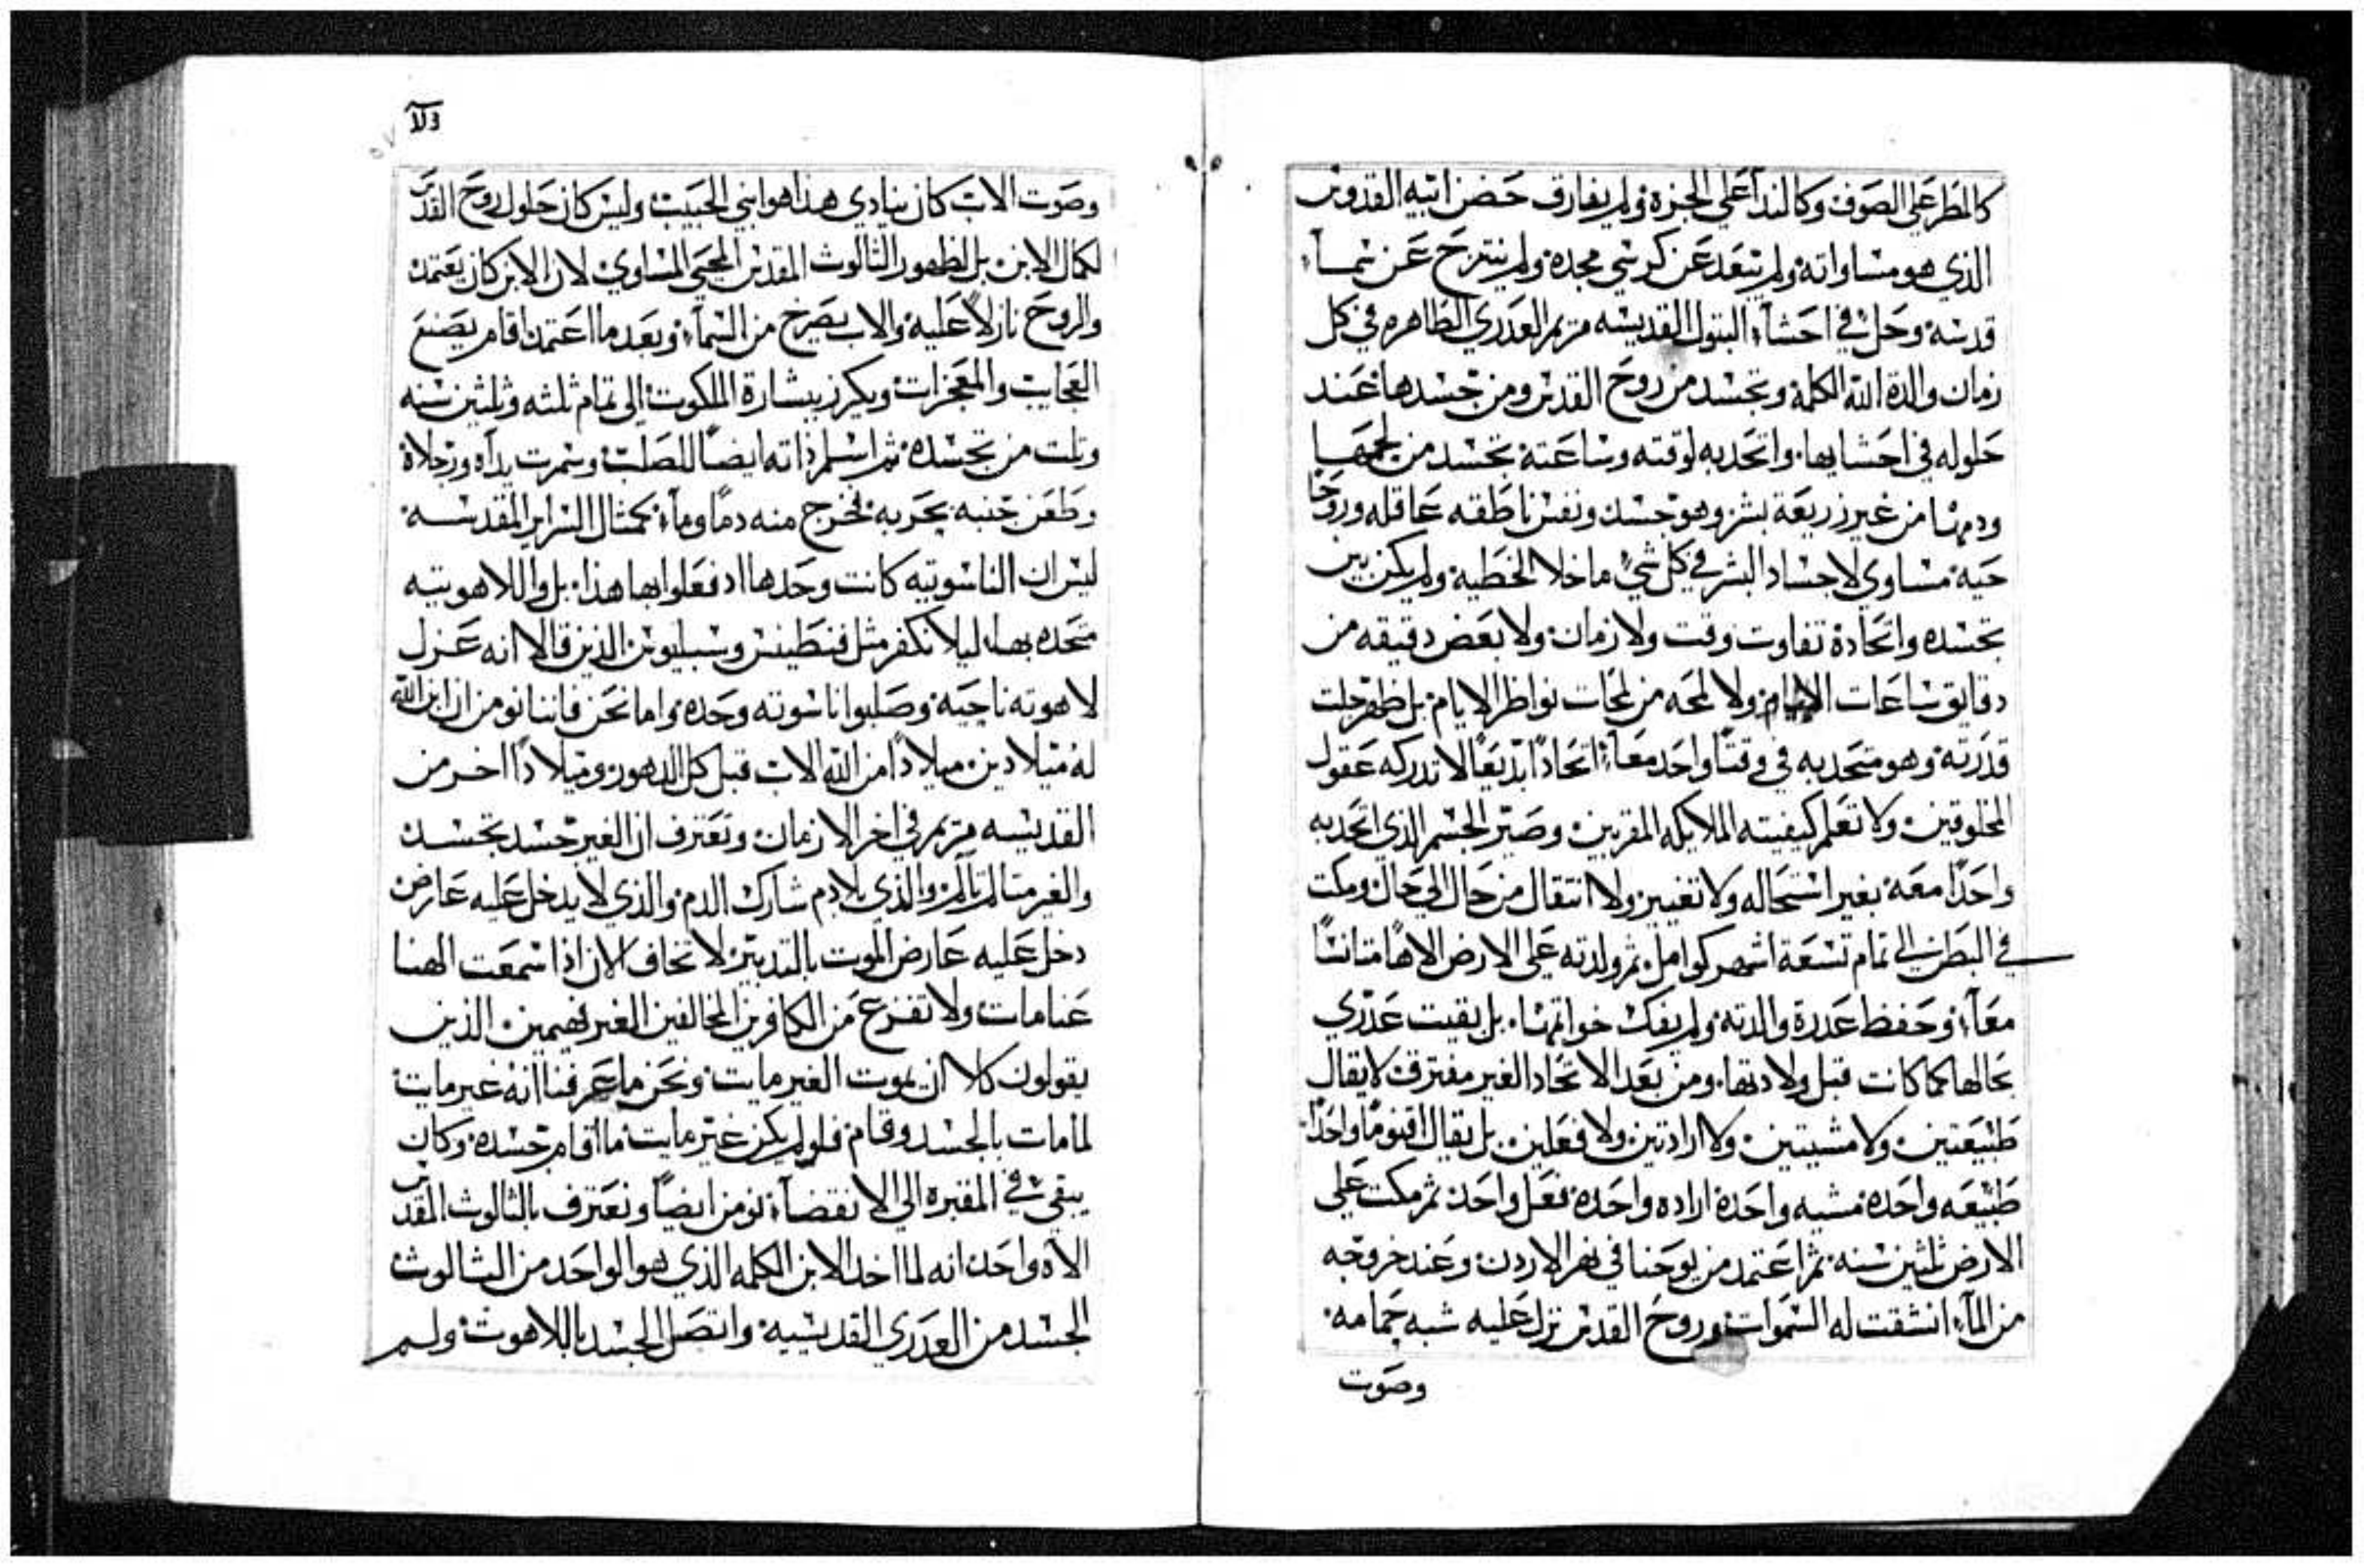 كالمطر علي الصوف وكالندا علي الجزة ولم يفارق حضن ابيه القدوس
الذي هو مساواته ولم يتبعد عن كرسي مجده ولم ينتزح عن سمآء
قدسه وحل في احشآء البتول القديسه مريم العدري الطاهره في كل
زمان والدة الله الكلمة وتجسد من روح القدس ومن جسدها عند
حلوله في احشايها واتحد به لوقته وساعته تجسد من لحمها
ودمها من غير زريعة بشر وهو جسد ونفس ناطقه عاقله وروحًا
حيه مساوي لاجساد البشر في كل شي ما خلا الخطيه ولم يكن بين
تجسده واتحاده تفاوت وقت ولا زمان ولا بعض دقيقه من
دقايق ساعات ولا لمحه من لمحات نواظر الايام بل ظهر جلت
قدرته وهو متحد به في وقتًا واحد معآ اتحادًا بديعًا لا تدركه عقول
المخلوقين ولا تعلم كيفيته الملايكه المقربين وصير الجسم الذي اتحد به
واحدًا معه بغير استحاله ولا تغيير ولا انتقال من حال الي حال ومكت
في البطن الي تمام تسعة اشهر كوامل ثم ولدته علي الارض الاهًا متانسًا
معآ وحفظ عدرة والدته ولم يفك خواتمها بل بقيت عدري
بحالها كما كانت قبل ولادتها ومن بعد الاتحاد الغير مفترق لا يقال
طبيعتين ولا مشيتين ولا ارادتين ولا فعلين بل يقال اقنومًا واحدًا
طبيعه واحده مشيه واحدة اراده واحدة فعل واحد ثم مكت علي
الارض ثلثين سنه ثم اعتمد من يوحنا في نهر الاردن وعند خروجه
من المآء انشقت له السموات وروح القدس نزل عليه شبه حمامه
وصوت
وصوت الاب كان ينادي هذا هو ابني الحبيب وليس كان حلول روح القدس
لكمال الابن بل لظهور الثالوث المقدس المحيي المساوي لان الابن كان يعتمد
والروح نازلاً عليه والاب يصرخ من السمآء وبعد ما اعتمد اقام يصنع
العجايب والمعجزات ويكرز ببشارة الملكوت الي تمام ثلثه وثلثين سنه
وتلت من تجسده ثم اسلم ذاته ايضًا للصلب وسمرت يداه ورجلاة
وطعن جنبه بحربه فخرج منه دمًا ومآء كمثال السراير المقدسه
ليس ان الناسوتيه كانت وحدها اد فعلوا بها هذا بل واللاهوتيه
متحده بها ليلا نكفر مثل وسبليوس الذين قالا انه عزل
لاهوته ناحية وصلبوا ناسوته وحده واما نحن فاننا نومن ان ابن الله
له ميلادين ميلادًا من الله الاب قبل كل الدهور وميلادًا اخر من
القديسه مريم في اخر الازمان ونعترف ان الغير جسد تجسد
والغير متالم تالم والذي بلا دم شارك الدم والذي لا يدخل عليه عارض
دخل عليه عارض الموت بالتدبير لا تخاف الان اذا سمعت الهنا
عنا مات ولا تفزع من الكافرين المخالفين الغير فهيمين الذين
يقولون كلا ان يموت الغير مايت ونحن ما عرفنا انه غير مايت
لما مات بالجسد وقام فلو لم يكن غير مايت ما اقام جسده وكان
يبقي في المقبره الي الانقضآء نومن ايضًا ونعترف بالثالوث المقدس
الاه واحد انه لما اخد الابن الكلمه الذي هو الواحد من الثالوث
الجسد من العدري القديسيه واتصل الجسد باللاهوت ولم